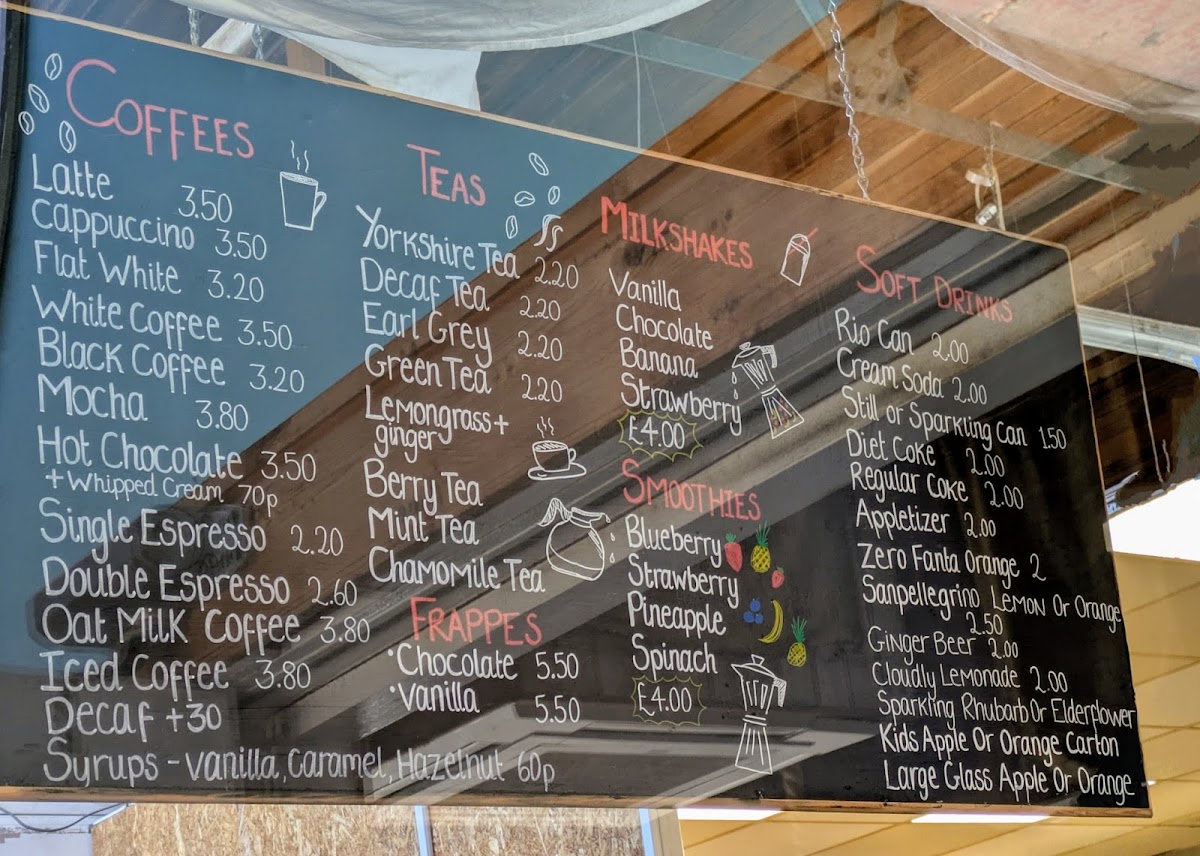 COFFEES
Latte 3.50
Cappuccino 3.50
Flat White 3.20
White Coffee 3.50
Black Coffee 3.20
Mocha 3.80
Hot Chocolate 3.50
+ Whipped Cream 70p
Single Espresso 2.20
Double Espresso 2.60
Oat Milk Coffee 3.80
Iced Coffee 3.80
Decaf +30
Syrups - Vanilla, Caramel, Hazelnut 60p
TEAS
Yorkshire Tea 2.20
Decaf Tea 2.20
Earl Grey 2.20
Green Tea 2.20
Lemongrass +
ginger
Berry Tea
Mint Tea
Chamomile Tea
FRAPPES
• Chocolate 5.50
• Vanilla 5.50
MILKSHAKES
Vanilla
Chocolate
Banana
Strawberry
£4.00
SMOOTHIES
Blueberry
Strawberry
Pineapple
Spinach
£4.00
SOFT DRINKS
Rio Can 2.00
Cream Soda 2.00
Still or Sparkling Can 1.50
Diet Coke 2.00
Regular Coke 2.00
Appletizer 2.00
Zero Fanta Orange 2
Sanpellegrino Lemon Or Orange
2.50
Ginger Beer 2.00
Cloudly Lemonade 2.00
Sparkling Rhubarb Or Elderflower
Kids Apple Or Orange Carton
Large Glass Apple Or Orange